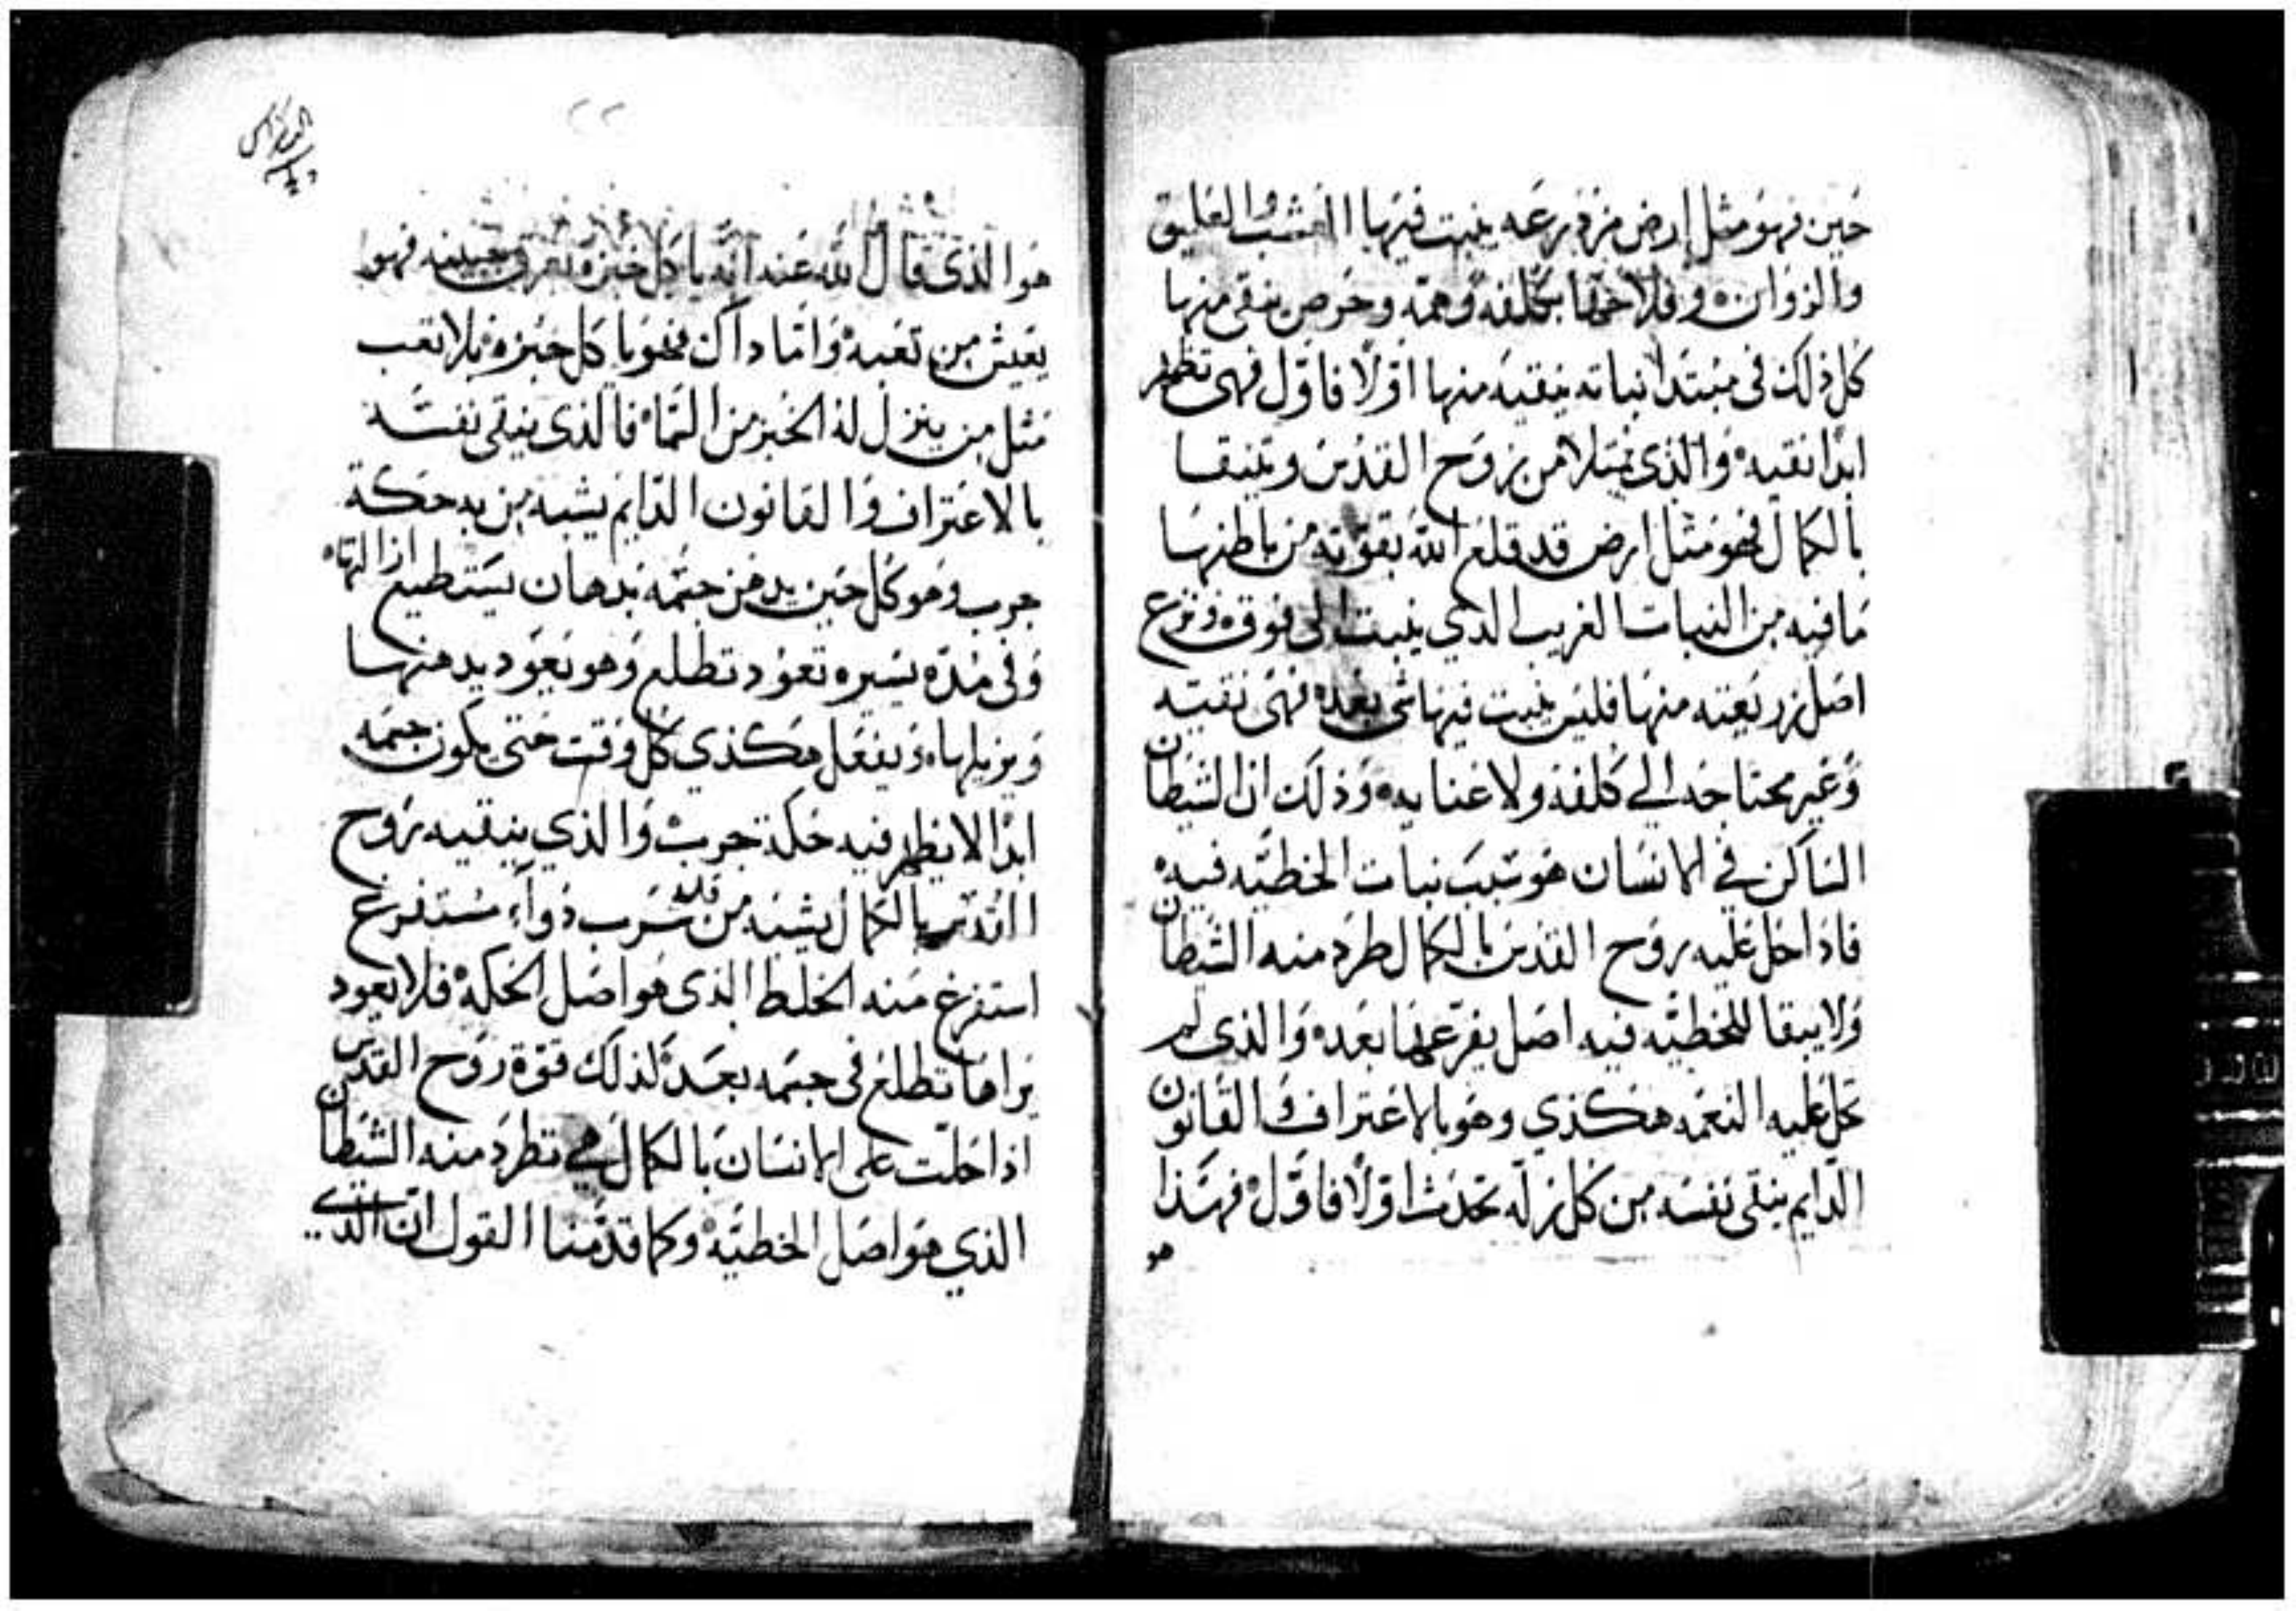 حين فهو مثل ارض مزدرعه ينبت فيها العشب والعليق
والزوان وفلاحها بكلفه وهمه وحرص ينقى منها
كل ذلك فى مبتدا نباته ينقيه منها اولا فاول فهى تظهر
ابدا نقيه والذى يمتلا من روح القدس ويتنقا
بالكمال فهو مثل ارض قد قلع الله بقوته من باطنها
ما فيه من النبات الغريب الذي ينبت الى فوق ونزع
اصل زريعته منها فليس ينبت فيها شى بعده فهى نقيه
وغير محتاجه الي كلفه ولا عنايه وذلك ان الشيطان
الساكن في الانسان هو سبب نبات الخطيه فيه
فاذا حل عليه روح القدس بالكمال طرد منه الشيطان
ولا يبقا للخطيه فيه اصل يفرعها بعده والذى لم
تحل عليه النعمه هكذي وهو بالاعتراف والقانون
الدايم ينقى نفسه من كل زله تحدث اولا فاول فهذا
هو
هوا لذى قال الله عنه انه ياكل خبزه بعرق جبينه فهو
يعيش من تعبه واما داك فهو ياكل خبزه بلا تعب
مثل من ينزل له الخبز من السماء فالذى ينقى نفسه
بالاعتراف والقانون الدايم يشبه من به حكة
جرب وهو كل حين يدهن جسمه بدهان يستطيع ازالتها
وفى مده يسيره تعود تطلع وهو يعود يدهنها
ويزيلها ويفعل هكذي كل وقت حتى يكون جسمه
ابدا لا يظهر فيه حكة جرب والذي ينقيه روح
القدس بالكمال يشبه من قد شرب دوآء مستفرغ
استفرغ منه الخلط الذى هو اصل الحكه فلا يعود
يراها تطلع فى جسمه بعد كذلك قوة روح القدس
اذا حلت على الانسان بالكمال هي تطرد منه الشيطان
الذي هو اصل الخطيه وكما قدمنا القول ان الذي